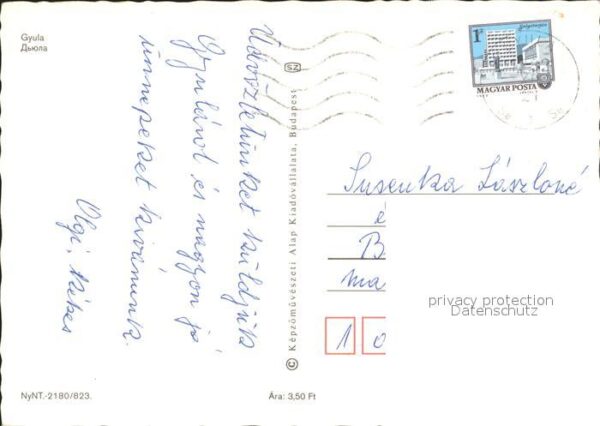 Gyula
Дьюла
Üdvözletünket küldjük
Gyuláról és nagyon jó
ünnepeket kívánunk.
Olgi, Mékes
SZ
© Képzőművészeti Alap Kiadóvállalata, Budapest
1Ft
Salgótarján
MAGYAR POSTA
Susenka Lászlóné
é
B
ma
1 0
privacy protection
Datenschutz
NyNT.-2180/823.
Ára: 3,50 Ft